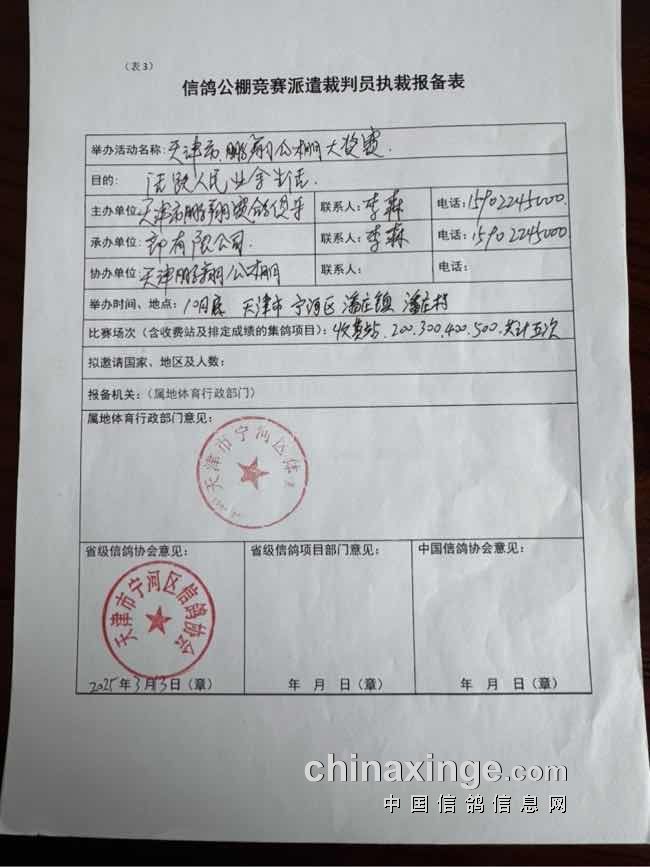 （表3）
信鸽公棚竞赛派遣裁判员执裁报备表
举办活动名称：天津市鹏翔公棚大奖赛
目的：活跃人民业余生活.
主办单位：天津市鹏翔赛鸽俱乐 联系人：李森 电话：15902245000.
承办单位：部有限公司. 联系人：李森 电话：15902245000
协办单位：天津鹏翔公棚 联系人： 电话：
举办时间、地点：10月底 天津市 宁河区 潘庄镇 潘庄村
比赛场次（含收费站及排定成绩的集鸽项目）：收费站.200.300.400.500.共计五次
拟邀请国家、地区及人数：
报备机关：（属地体育行政部门）
属地体育行政部门意见：
天津市宁河区体
省级信鸽协会意见： 省级信鸽项目部门意见： 中国信鸽协会意见：
天津市宁河区信鸽协会
2025年3月13日（章） 年 月 日（章） 年 月 日（章）
chinaxinge.com
中国信鸽信息网